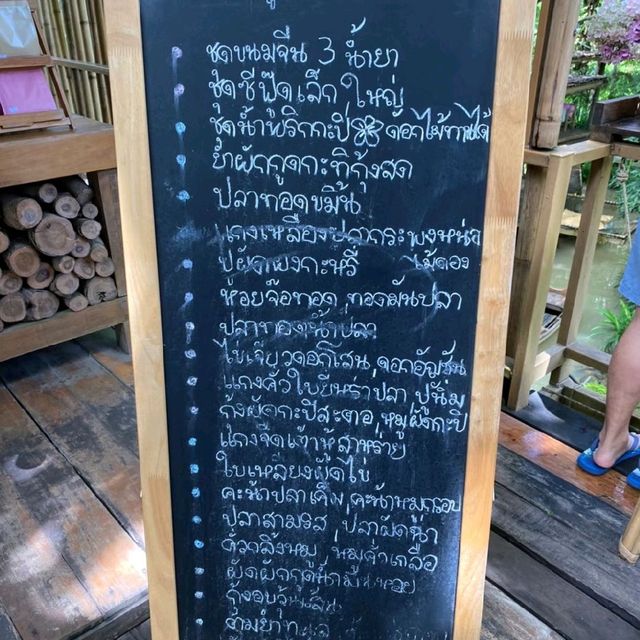 ชุดขนมจีน 3 น้ำยา
ชุดซีฟู๊ดเล็ก ใหญ่
ชุดน้ำพริกกะปิ ดอกไม้ทานได้
ยำผักกูดกะทิกุ้งสด
ปลาทอดขมิ้น
แกงเหลืองปลากระพงหน่อ
ปูผัดผงกะหรี่ ไม้ดอง
หอยจ๊อทอด, ทอดมันปลา
ปลาทอดน้ำปลา
ไข่เจียวดอกโสน, ดอกอัญชัน
แกงคั่วใบยี่หร่าปลา ปูนิ่ม
กุ้งผัดกะปิสะตอ, หมูผัดกะปิ
แกงจืดเต้าหู้สาหร่าย
ใบเหลียงผัดไข่
คะน้าปลาเค็ม, คะน้าหมูกรอบ
ปลาสามรส, ปลาผัดฉ่า
คั่วกลิ้งหมู, หมูคั่วเกลือ
ผัดผักกูดน้ำมันหอย
กุ้งอบวุ้นเส้น